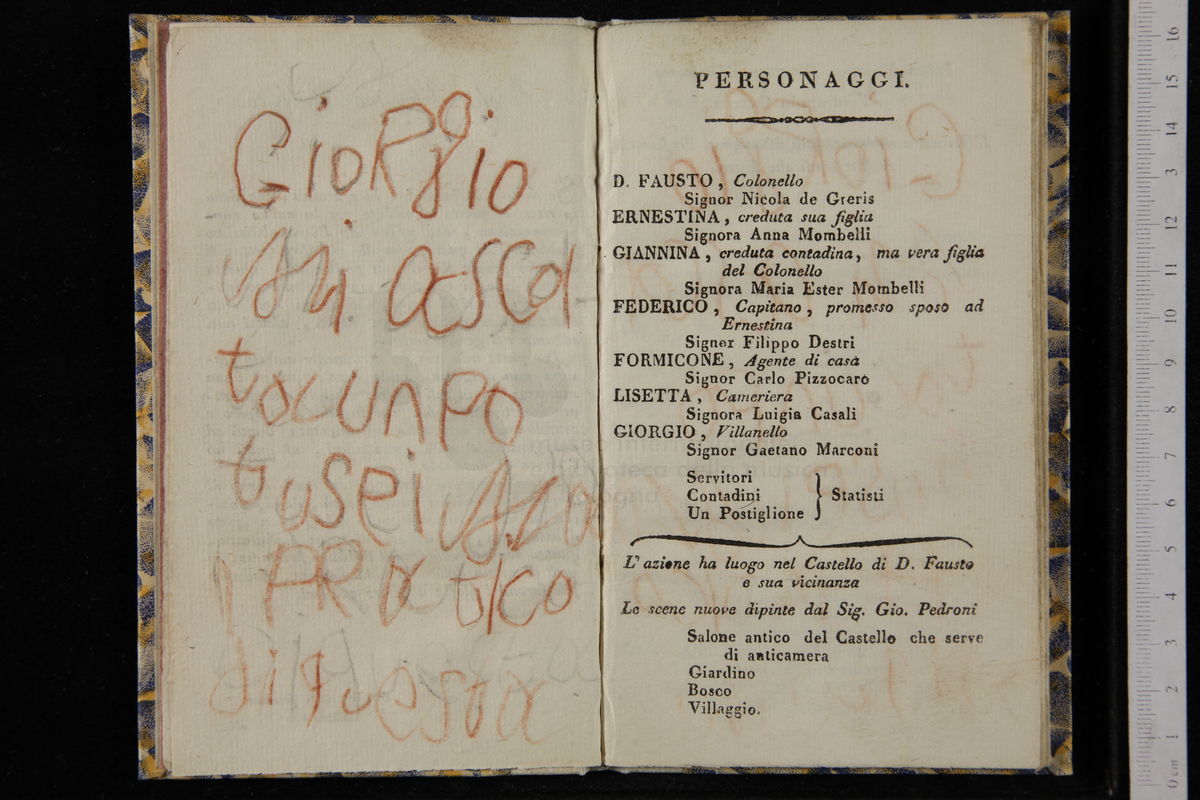 Giorgio
Mi ascol-
ta un po
tu sei
PRatico
di questa
PERSONAGGI.
D. FAUSTO, Colonello
Signor Nicola de Greris
ERNESTINA, creduta sua figlia
Signora Anna Mombelli
GIANNINA, creduta contadina, ma vera figlia
del Colonello
Signora Maria Ester Mombelli
FEDERICO, Capitano, promesso sposo ad
Ernestina
Signor Filippo Destri
FORMICONE, Agente di casa
Signor Carlo Pizzocaro
LISETTA, Cameriera
Signora Luigia Casali
GIORGIO, Villanello
Signor Gaetano Marconi
Servitori
Contadini } Statisti
Un Postiglione
L'azione ha luogo nel Castello di D. Fausto
e sua vicinanza
Le scene nuove dipinte dal Sig. Gio. Pedroni
Salone antico del Castello che serve
di anticamera
Giardino
Bosco
Villaggio.
0 cm 1 2 3 4 5 6 7 8 9 10 11 12 13 14 15 16